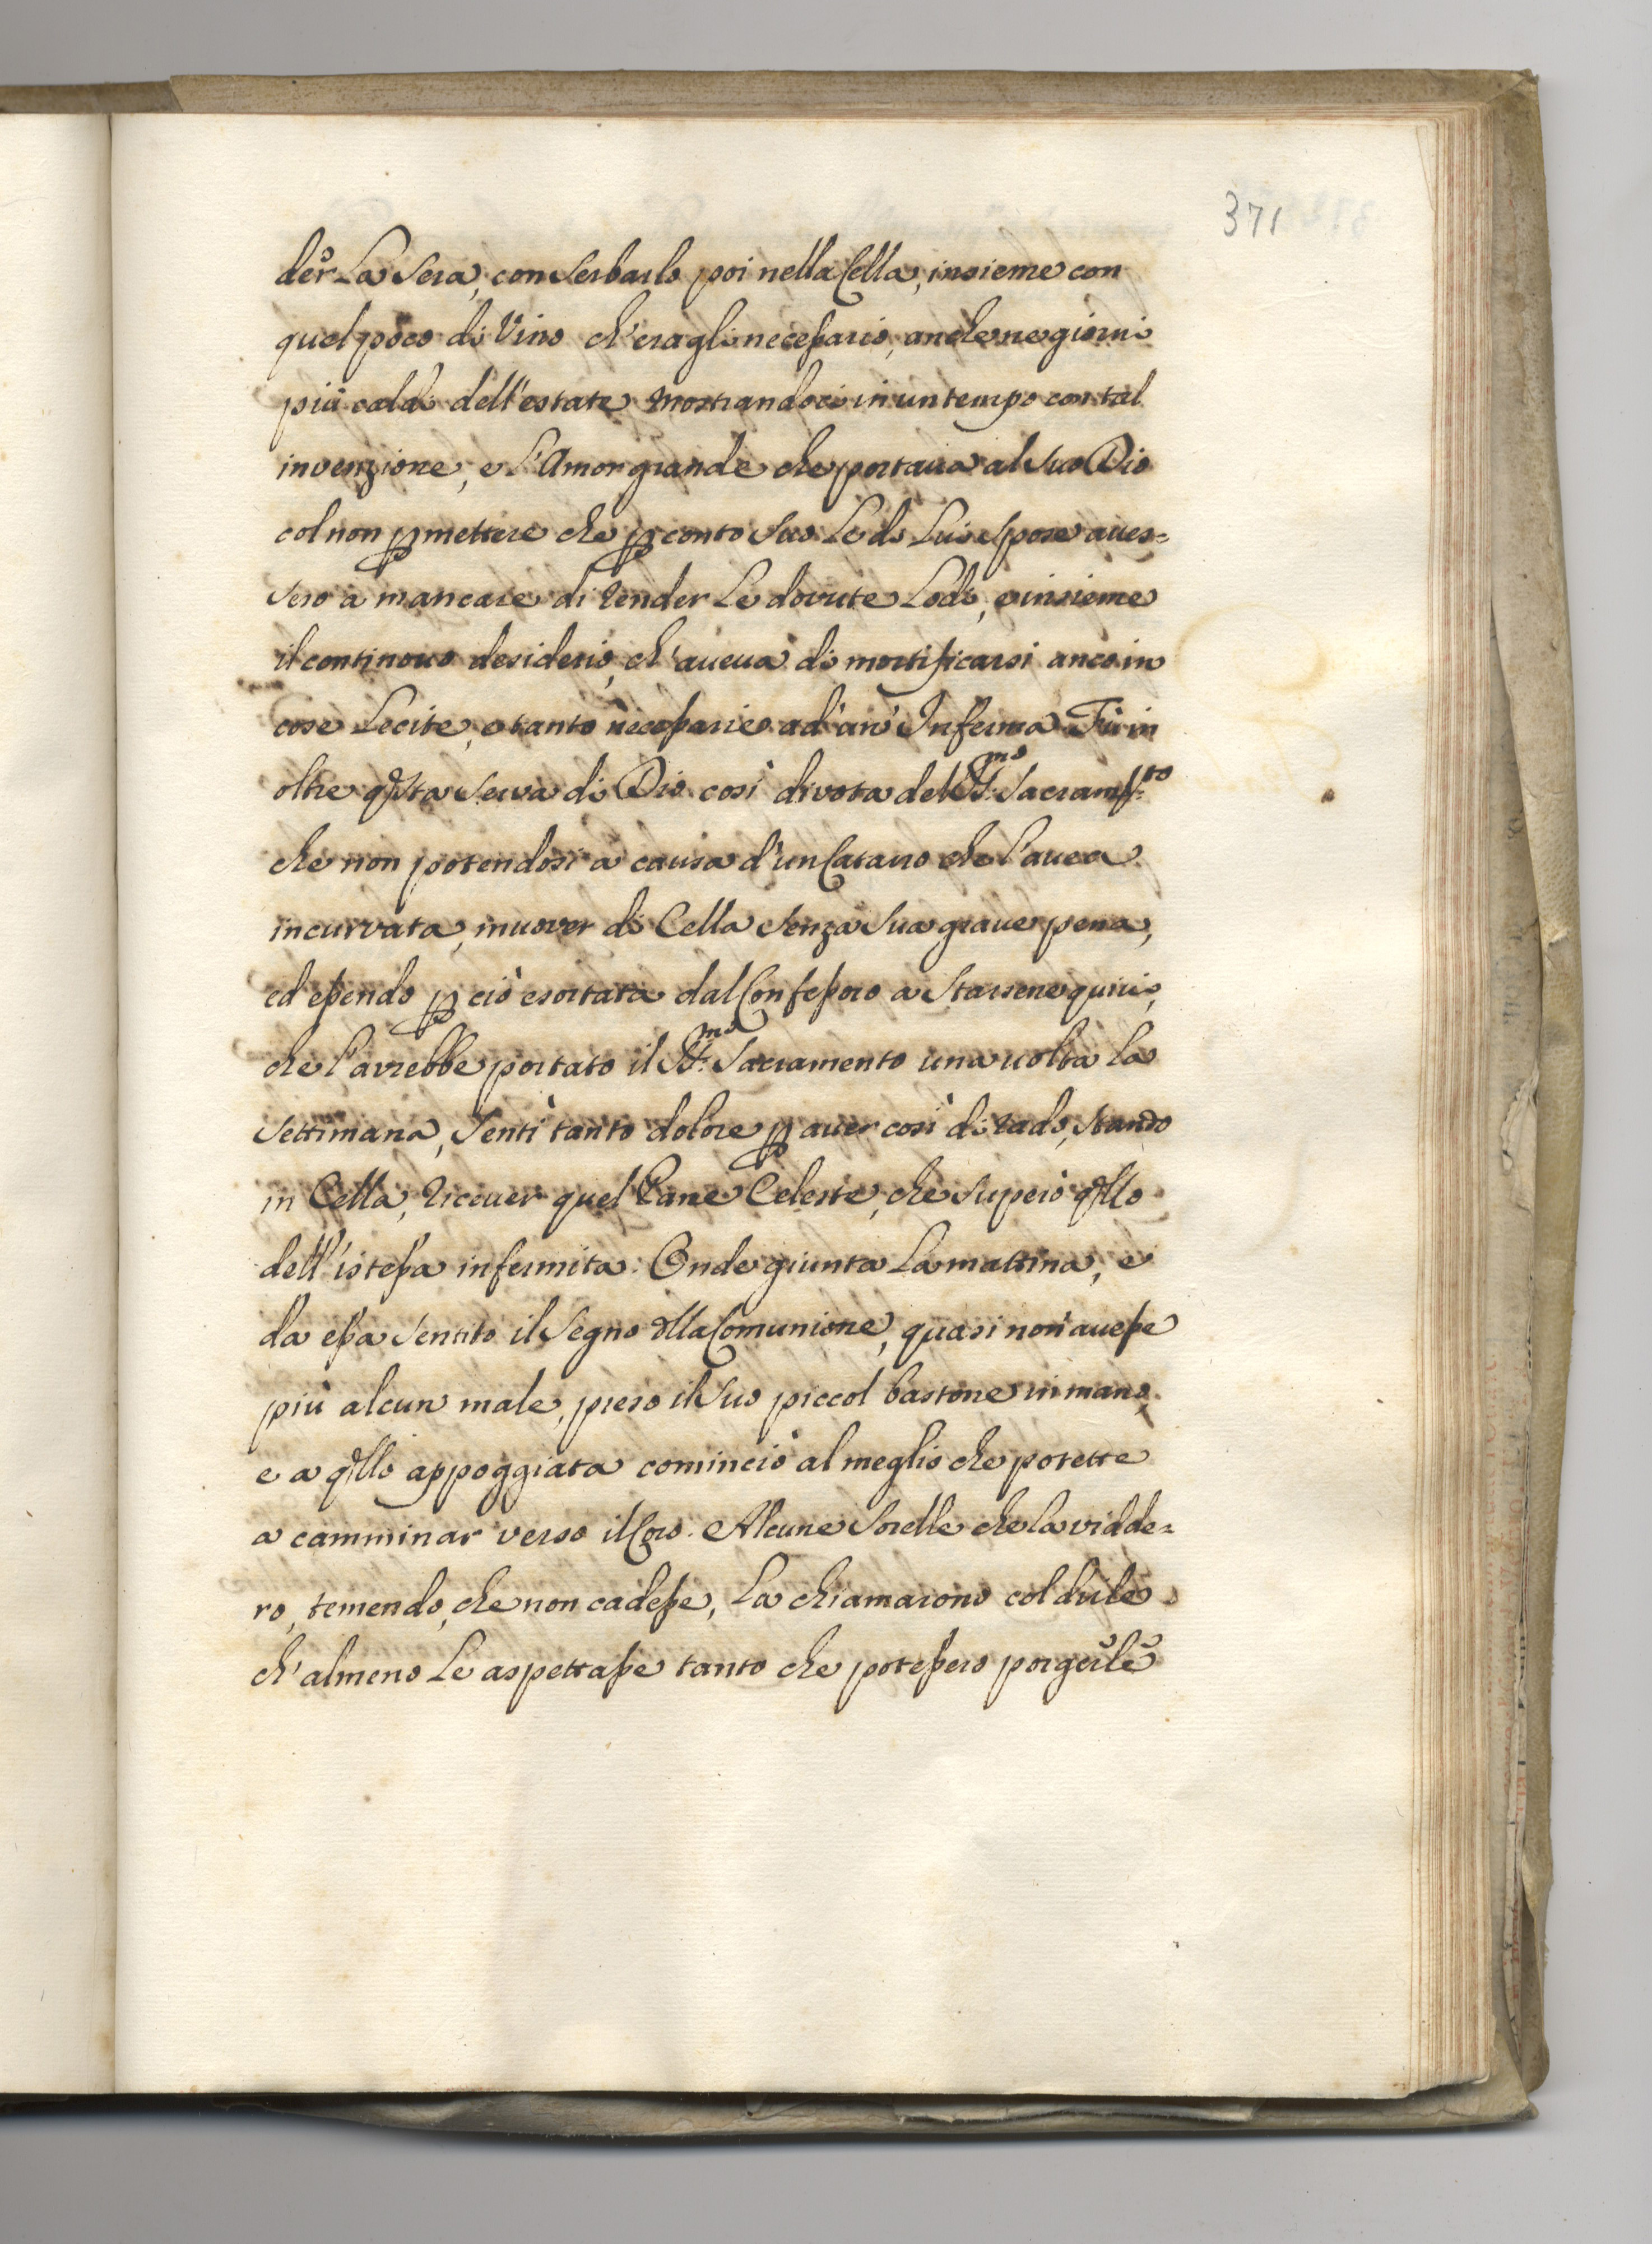 371
der La Sera, con Serbarlo poi nella Cella, insieme con
quel poco di Vino ch'eragli necessario, anche ne giorni
più caldi dell'estate mostrandoci in un tempo con tal
invenzione, e l'Amor grande che portava al Suo Dio
col non ꝑmettere che ꝑ conto Suo Le di Lui Spose aues=
sero a mancare di render Le dovute Lodi, e insieme
il continouo desiderio, ch'aueua di mortificarsi anco in
cose Lecite, e tanto necessarie ad un' Inferma. Fù in
oltre qsta Serva di Dio così divota del SSmo Sacramto
che non potendosi a causa d'un Catarro che l'avea
incurvata, muover di Cella Senza Sua graue pena,
ed essendo ꝑ ciò esortata dal Confessoro a Starsene quivi,
che l'avrebbe portato il SSmo Sacramento una uolta la
Settimana, Sentì tanto dolore ꝑ auer così di rado, Stando
in Cella, riceuer quel Pane Celeste, che Superò qllo
dell'istessa infermità. Onde giunta La mattina, e
da essa Sentito il Segno dlla Comunione, quasi non auesse
più alcun male, preso il Suo piccol bastone in mano,
e a qllo appoggiata cominciò al meglio che potette
a camminar verso il Coro. Alcune Sorelle che la vidde=
ro, temendo, che non cadesse, La chiamarono col dirle
ch'almeno Le aspettasse tanto che potessero porgerle